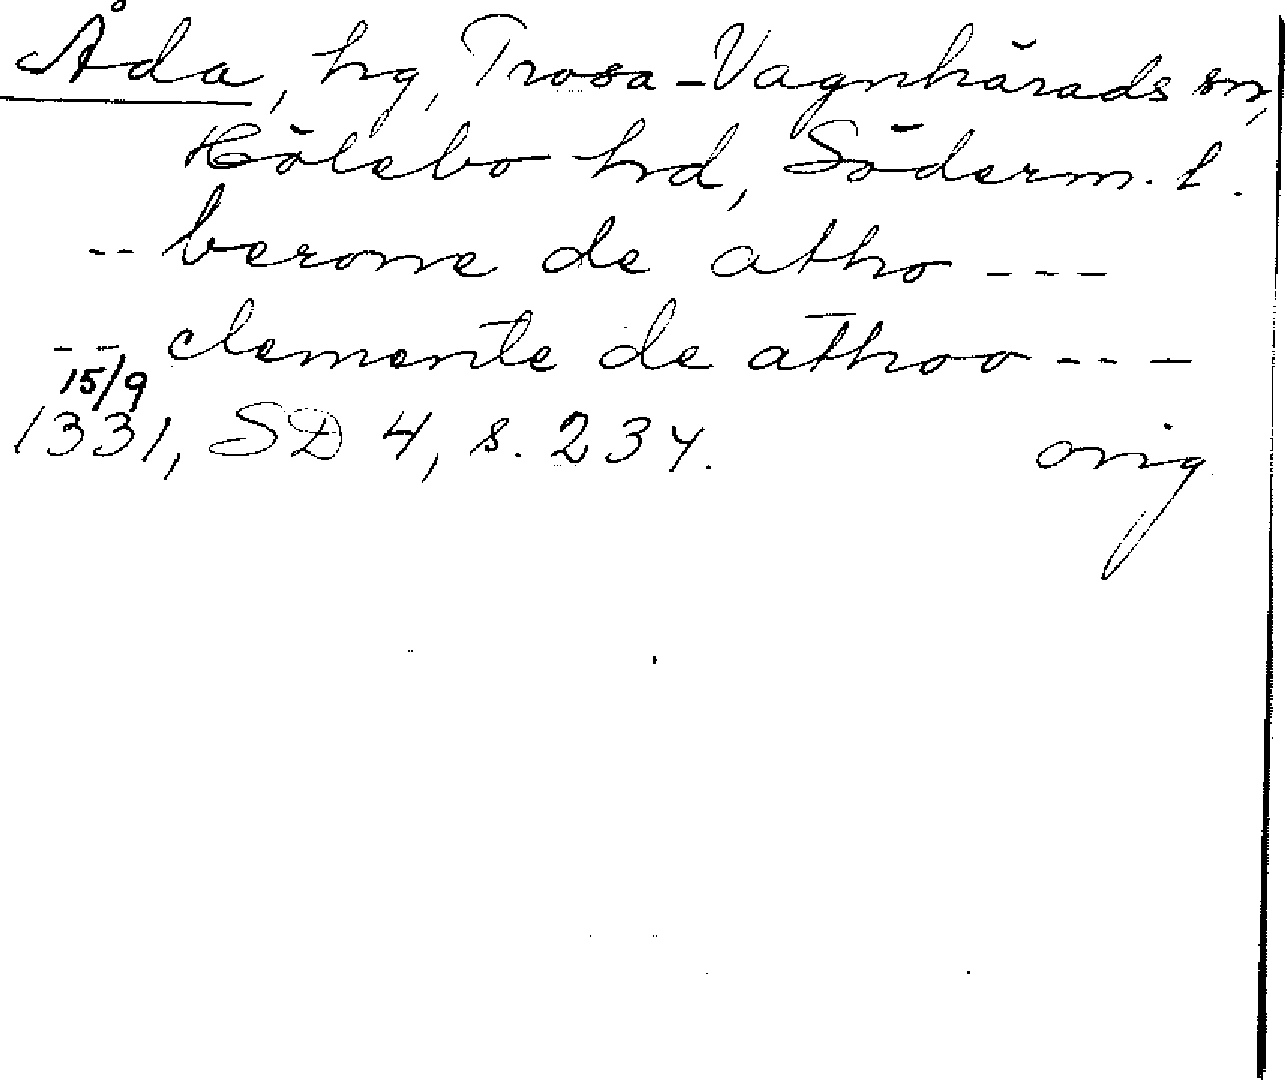 Åda, hg, Trosa-Vagnhärads sn,
Hölebo hd, Söderm. l.
-- berone de atho ---
-- clemente de athoo ---
15/9
1331, SD 4, s. 234. orig